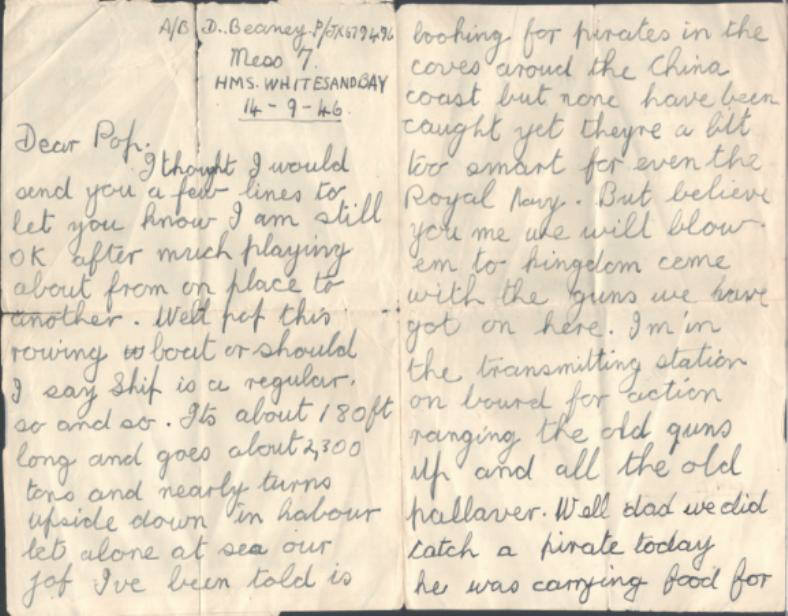 A/B D. Beaney. P/JX679496
Mess 7.
HMS. WHITESANDBAY
14 - 9 - 46.
Dear Pop.
I thought I would
send you a few lines to
let you know I am still
OK after much playing
about from on place to
another. Well pop this
rowing boat or should
I say Ship is a regular.
so and so. Its about 180ft
long and goes about 2,300
tons and nearly turns
upside down in habour
let alone at sea our
jof I've been told is
looking for pirates in the
coves aroud the China
coast but none have been
caught yet theyre a bit
too smart for even the
Royal Navy. But believe
you me we will blow
em to kingdom come
with the guns we have
got on here. I'm in
the transmitting station
on bourd for action
ranging the old guns
up and all the old
pallaver. Well dad we did
catch a pirate today
he was carrying food for